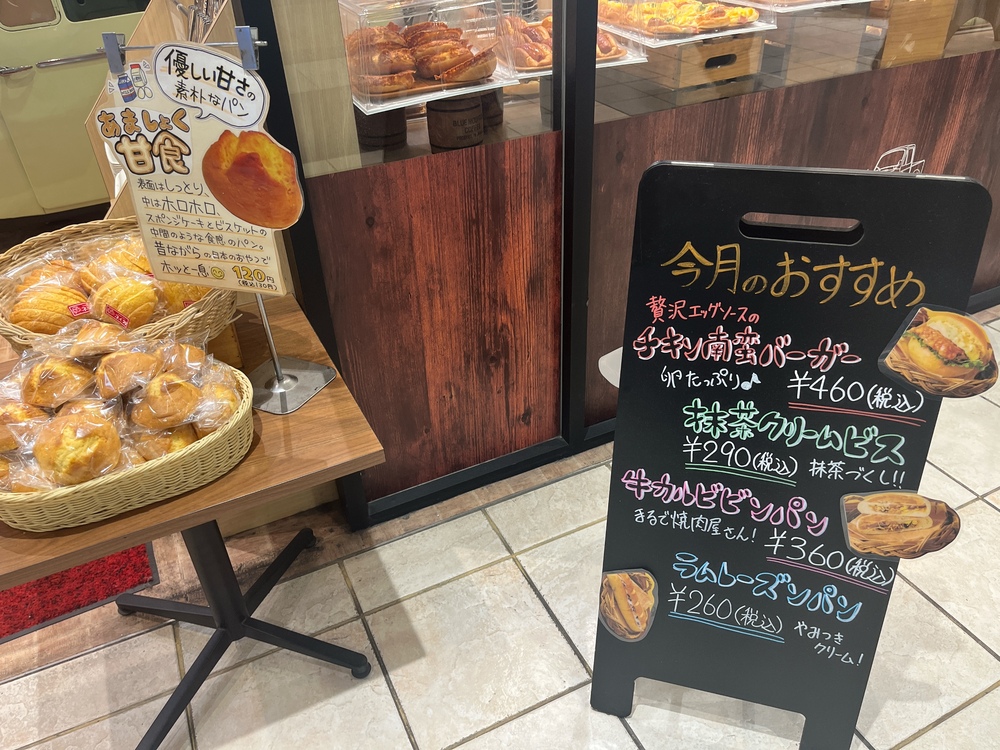 優しい甘さの
素朴なパン
あましょく
甘食
表面はしっとり、
中はホロホロ、
スポンジケーキとビスケットの
中間のような食感のパン。
昔ながらの日本のおやつで
ホッと一息
120円
(税込130円)
今月のおすすめ
贅沢エッグソースの
チキン南蛮バーガー
卵たっぷり♪
¥460(税込)
抹茶クリームビス
¥290(税込)
抹茶づくし!!
牛カルビビンパン
まるで焼肉屋さん!
¥360(税込)
ラムレーズンパン
¥260(税込)
やみつき
クリーム!